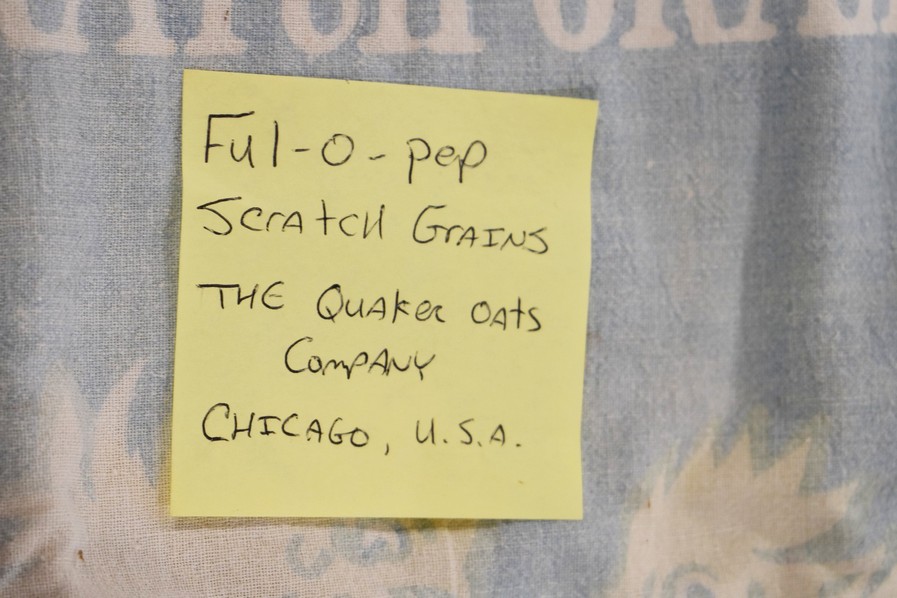 Ful-O-pep
Scratch Grains
THE Quaker Oats
Company
CHICAGO, U.S.A.